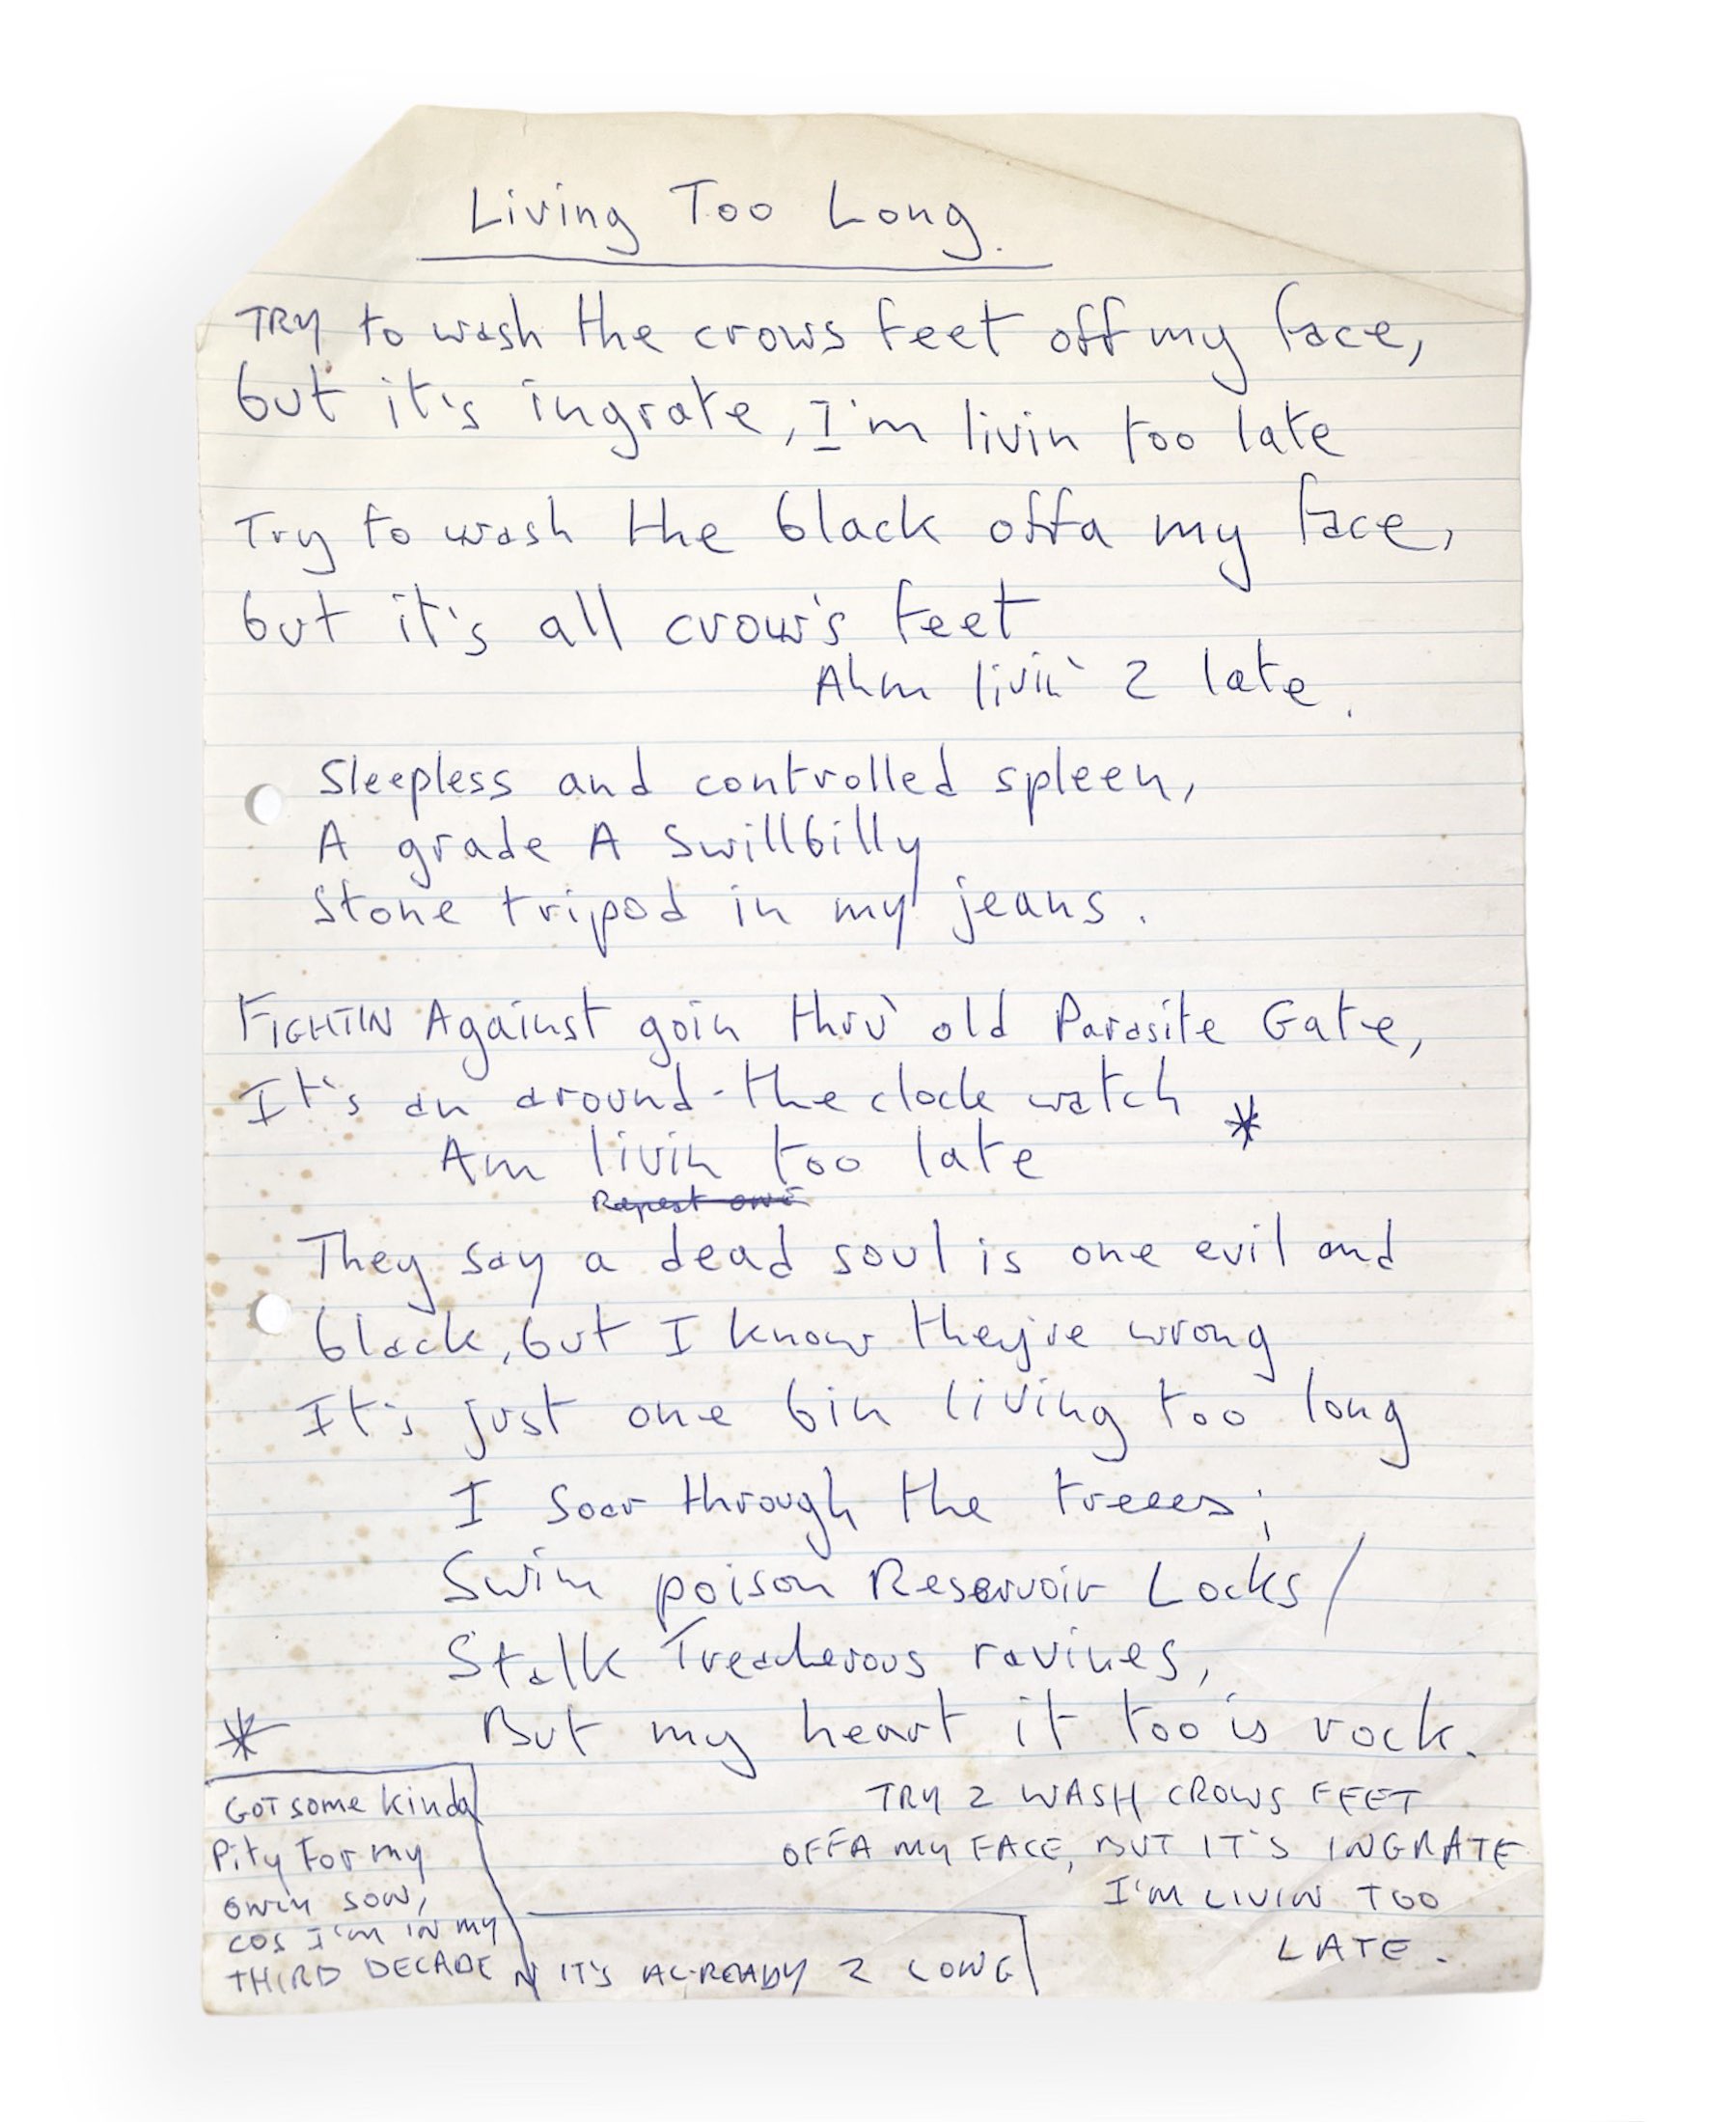 Living Too Long.
TRY to wash the crows feet off my face,
but it's ingrate, I'm livin too late
Try to wash the black offa my face,
but it's all crow's feet
Ahm livin' 2 late.
Sleepless and controlled spleen,
A grade A Swillbilly
Stone tripod in my jeans.
FIGHTIN Against goin thru' old Parasite Gate,
It's an around-the clock watch *
Am livin too late
Repeat
They say a dead soul is one evil and
black, but I know they're wrong
It's just one bin living too long
I soar through the treees;
Swim poison Reservoir Locks /
Stalk Treacherous ravines,
But my heart it too is rock.
*
GOT some kinda
Pity for my
own son,
COS I'm IN MY
THIRD DECADE N IT'S ALREADY 2 LONG
TRY 2 WASH CROWS FEET
OFFA MY FACE, BUT IT'S INGRATE
I'M LIVIN TOO
LATE.